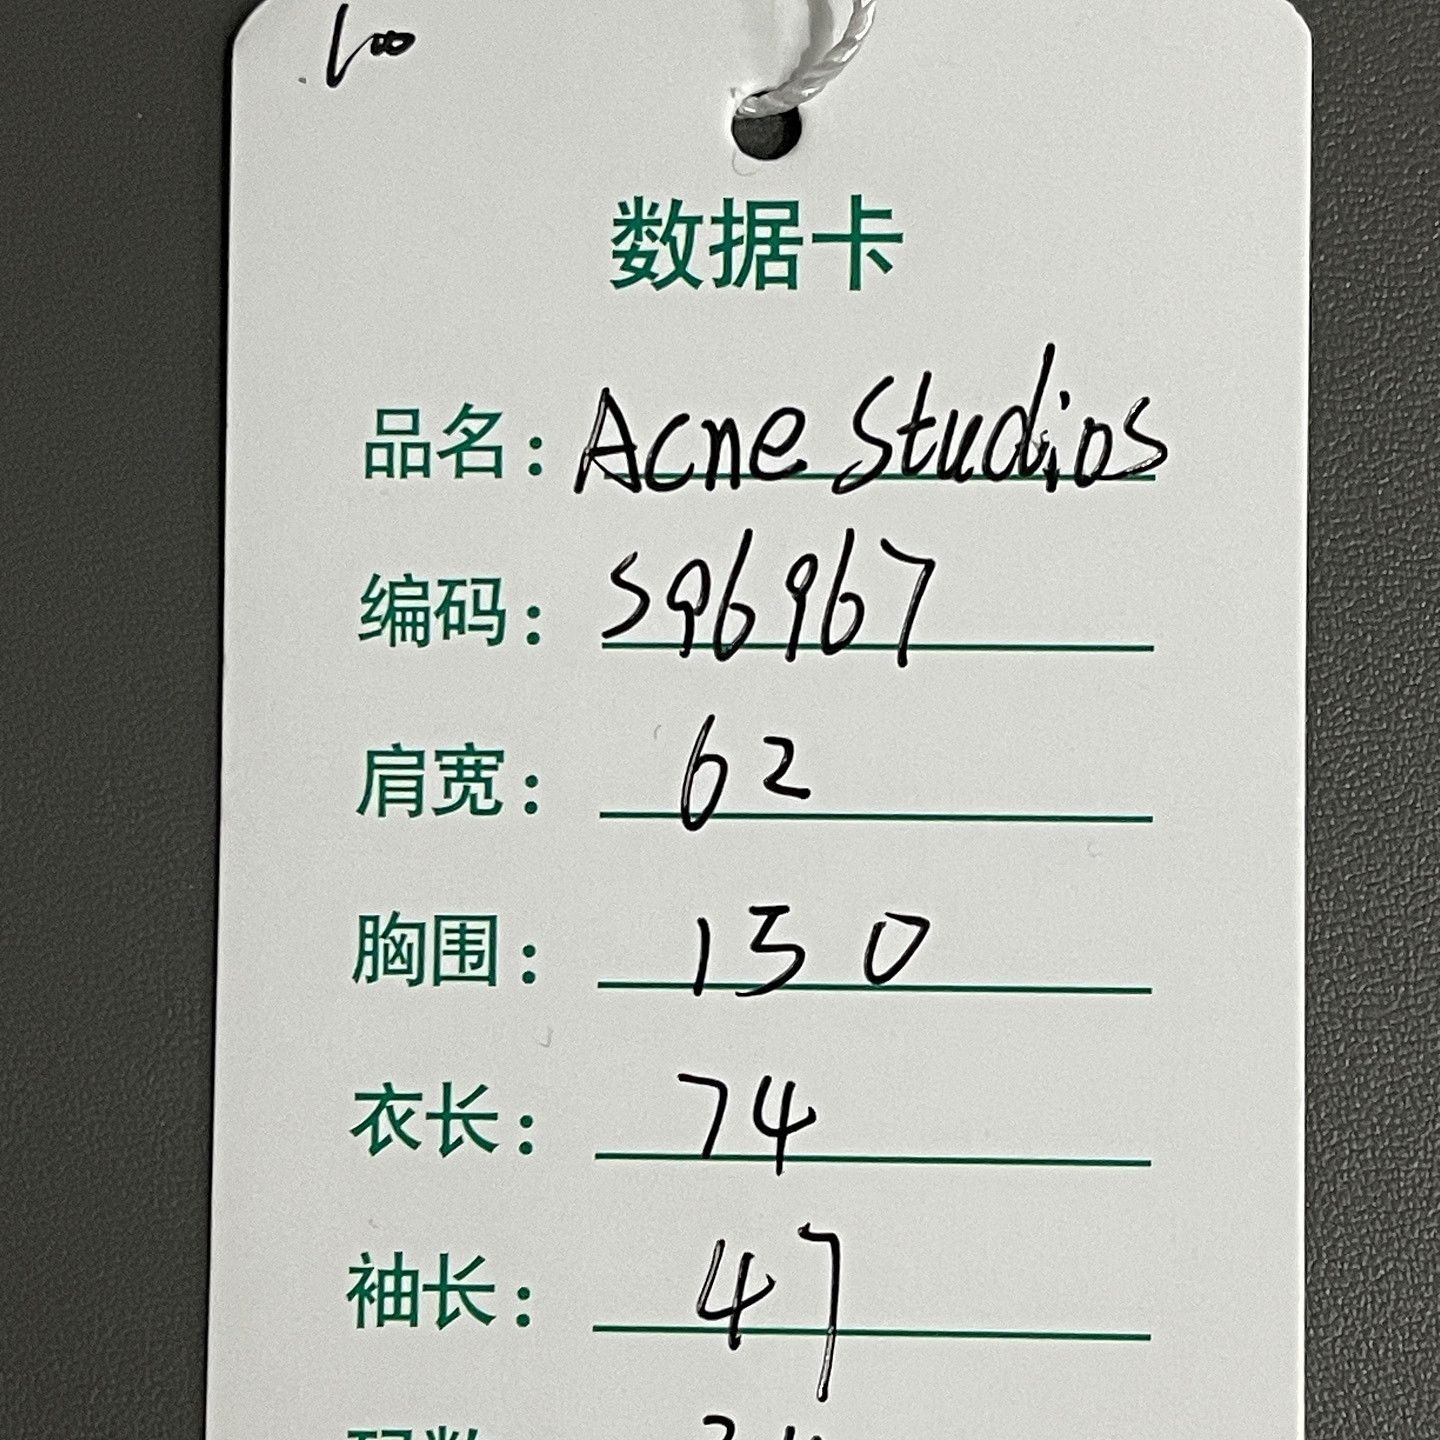 100
数据卡
品名：Acne Studios
编码：S96967
肩宽：62
胸围：150
衣长：74
袖长：47